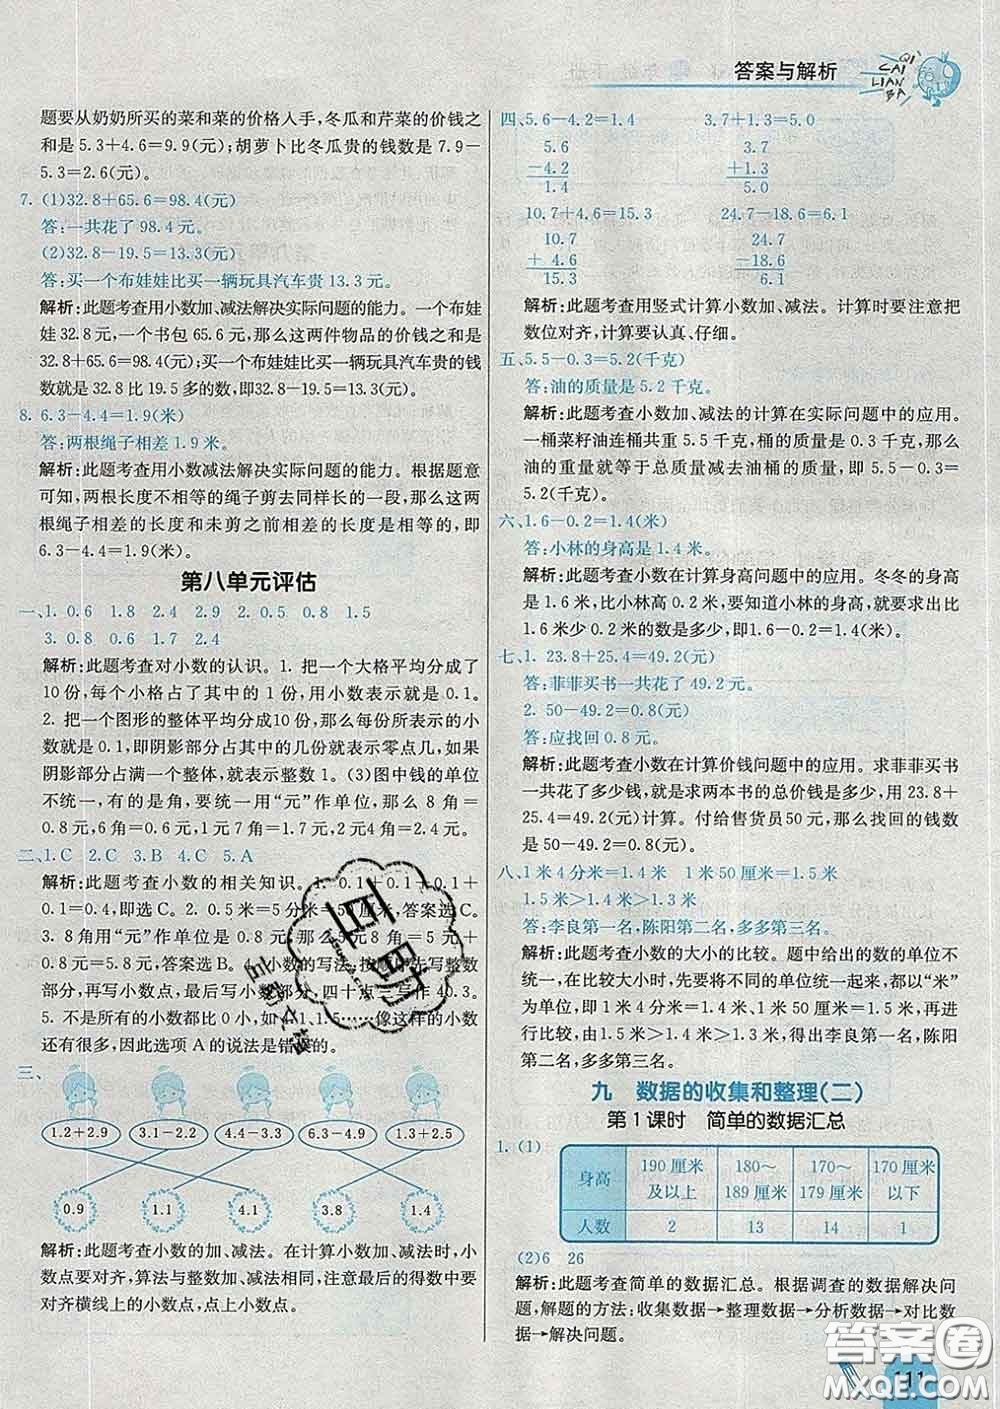 答案与解析
QI
CAI
LIAN
BA
题要从奶奶所买的菜和菜的价格入手,冬瓜和芹菜的价钱之
和是5.3+4.6=9.9(元);胡萝卜比冬瓜贵的钱数是7.9-
5.3=2.6(元)。
7. (1)32.8+65.6=98.4(元)
答:一共花了98.4元。
(2)32.8-19.5=13.3(元)
答:买一个布娃娃比买一辆玩具汽车贵13.3元。
解析:此题考查用小数加、减法解决实际问题的能力。一个布娃
娃32.8元,一个书包65.6元,那么这两件物品的价钱之和是
32.8+65.6=98.4(元);买一个布娃娃比买一辆玩具汽车贵的钱
数就是32.8比19.5多的数,即32.8-19.5=13.3(元)。
8. 6.3-4.4=1.9(米)
答:两根绳子相差1.9米。
解析:此题考查用小数减法解决实际问题的能力。根据题意
可知,两根长度不相等的绳子剪去同样长的一段,那么这两
根绳子相差的长度和未剪之前相差的长度是相等的,即
6.3-4.4=1.9(米)。
第八单元评估
一、1. 0.6 1.8 2.4 2.9 2. 0.5 0.8 1.5
3. 0.8 0.6 1.7 2.4
解析:此题考查对小数的认识。1. 把一个大格平均分成了
10份,每个小格占了其中的1份,用小数表示就是0.1。
2. 把一个图形的整体平均分成10份,那么每份所表示的小
数就是0.1,即阴影部分占其中的几份就表示零点几,如果
阴影部分占满一个整体,就表示整数1。(3)图中钱的单位
不统一,有的是角,要统一用“元”作单位,那么8角=
0.8元,6角=0.6元,1元7角=1.7元,2元4角=2.4元。
二、1.C 2.C 3.B 4.C 5.A
解析:此题考查小数的相关知识。1. 0.1+0.1+0.1+
0.1=0.4,即选C。2. 0.5米=5分米=50厘米,答案选C。
3. 8角用“元”作单位是0.8元,答案选B。4. 小数的写法,按先写整数
部分,再写小数点,最后写小数部分,四十点三写作40.3。
5. 不是所有的小数都比0小,如1.1、1.5……像这样的小数
还有很多,因此选项A的说法是错误的。
三、
1.2+2.9 3.1-2.2 4.4-3.3 6.3-4.9 1.3+2.5
0.9 1.1 4.1 3.8 1.4
解析:此题考查小数的加、减法。在计算小数加、减法时,小
数点要对齐,算法与整数加、减法相同,注意最后的得数中要
对齐横线上的小数点,点上小数点。
四、5.6-4.2=1.4 3.7+1.3=5.0
5.6 3.7
-4.2 +1.3
1.4 5.0
10.7+4.6=15.3 24.7-18.6=6.1
10.7 24.7
+ 4.6 -18.6
15.3 6.1
解析:此题考查用竖式计算小数加、减法。计算时要注意把
数位对齐,计算要认真、仔细。
五、5.5-0.3=5.2(千克)
答:油的质量是5.2千克。
解析:此题考查小数加、减法的计算在实际问题中的应用。
一桶菜籽油连桶共重5.5千克,桶的质量是0.3千克,那么
油的重量就等于总质量减去油桶的质量,即5.5-0.3=
5.2(千克)。
六、1.6-0.2=1.4(米)
答:小林的身高是1.4米。
解析:此题考查小数在计算身高问题中的应用。冬冬的身高
是1.6米,冬冬比小林高0.2米,要知道小林的身高,就要求出比
1.6米少0.2米的数是多少,即1.6-0.2=1.4(米)。
七、1. 23.8+25.4=49.2(元)
答:菲菲买书一共花了49.2元。
2. 50-49.2=0.8(元)
答:应找回0.8元。
解析:此题考查小数在计算价钱问题中的应用。求菲菲买书
一共花了多少钱,就是求两本书的总价钱是多少,用23.8+
25.4=49.2(元)计算。付给售货员50元,那么找回的钱数
是50-49.2=0.8(元)。
八、1米4分米=1.4米 1米50厘米=1.5米
1.5米>1.4米>1.3米
答:李良第一名,陈阳第二名,多多第三名。
解析:此题考查小数的大小的比较。题中给出的数的单位不
统一,在比较大小时,先要将不同的单位统一起来,都以“米”
为单位,即1米4分米=1.4米,1米50厘米=1.5米,再进
行比较,由1.5米>1.4米>1.3米,可以得出李良第一名,陈阳
第二名,多多第三名。
九 数据的收集和整理(二)
第1课时 简单的数据汇总
1. (1)
身高 190厘米及以上 180~189厘米 170~179厘米 170厘米以下
人数 2 13 14 1
(2)6 26
解析:此题考查简单的数据汇总。根据调查的数据解决问
题,解题的方法:收集数据→整理数据→分析数据→对比数
据→解决问题。
答案圈
MXQE.COM
111